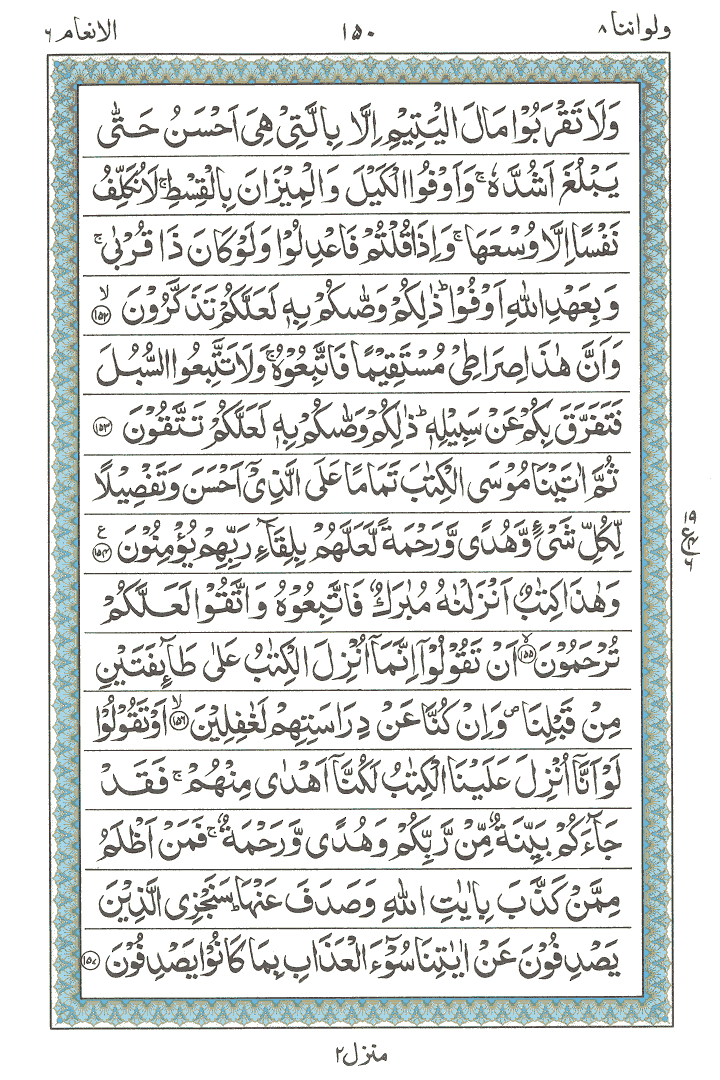 ولو اننا ۸ ۱۵۰ الانعام ۶
وَلَا تَقْرَبُوْا مَالَ الْيَتِيْمِ اِلَّا بِالَّتِيْ هِيَ اَحْسَنُ حَتّٰى
يَبْلُغَ اَشُدَّهٗ ۚ وَاَوْفُوا الْكَيْلَ وَالْمِيْزَانَ بِالْقِسْطِ ۚ لَا نُكَلِّفُ
نَفْسًا اِلَّا وُسْعَهَا ۚ وَاِذَا قُلْتُمْ فَاعْدِلُوْا وَلَوْ كَانَ ذَا قُرْبٰى ۚ
وَبِعَهْدِ اللّٰهِ اَوْفُوْا ؕ ذٰلِكُمْ وَصّٰىكُمْ بِهٖ لَعَلَّكُمْ تَذَكَّرُوْنَ ۙ ۱۵۲
وَاَنَّ هٰذَا صِرَاطِيْ مُسْتَقِيْمًا فَاتَّبِعُوْهُ ۚ وَلَا تَتَّبِعُوا السُّبُلَ
فَتَفَرَّقَ بِكُمْ عَنْ سَبِيْلِهٖ ؕ ذٰلِكُمْ وَصّٰىكُمْ بِهٖ لَعَلَّكُمْ تَتَّقُوْنَ ۱۵۳
ثُمَّ اٰتَيْنَا مُوْسَى الْكِتٰبَ تَمَامًا عَلَى الَّذِيْۤ اَحْسَنَ وَتَفْصِيْلًا
لِّكُلِّ شَيْءٍ وَّهُدًى وَّرَحْمَةً لَّعَلَّهُمْ بِلِقَآءِ رَبِّهِمْ يُؤْمِنُوْنَ ۱۵۴ ع
۱۹
ع ۴
۶
وَهٰذَا كِتٰبٌ اَنْزَلْنٰهُ مُبٰرَكٌ فَاتَّبِعُوْهُ وَاتَّقُوْا لَعَلَّكُمْ
تُرْحَمُوْنَ ۙ ۱۵۵ اَنْ تَقُوْلُوْۤا اِنَّمَاۤ اُنْزِلَ الْكِتٰبُ عَلٰى طَآئِفَتَيْنِ
مِنْ قَبْلِنَا ۪ وَاِنْ كُنَّا عَنْ دِرَاسَتِهِمْ لَغٰفِلِيْنَ ۙ ۱۵۶ اَوْ تَقُوْلُوْا
لَوْ اَنَّاۤ اُنْزِلَ عَلَيْنَا الْكِتٰبُ لَكُنَّاۤ اَهْدٰى مِنْهُمْ ۚ فَقَدْ
جَآءَكُمْ بَيِّنَةٌ مِّنْ رَّبِّكُمْ وَهُدًى وَّرَحْمَةٌ ۚ فَمَنْ اَظْلَمُ
مِمَّنْ كَذَّبَ بِاٰيٰتِ اللّٰهِ وَصَدَفَ عَنْهَا ؕ سَنَجْزِي الَّذِيْنَ
يَصْدِفُوْنَ عَنْ اٰيٰتِنَا سُوْٓءَ الْعَذَابِ بِمَا كَانُوْا يَصْدِفُوْنَ ۱۵۷
منزل ۲